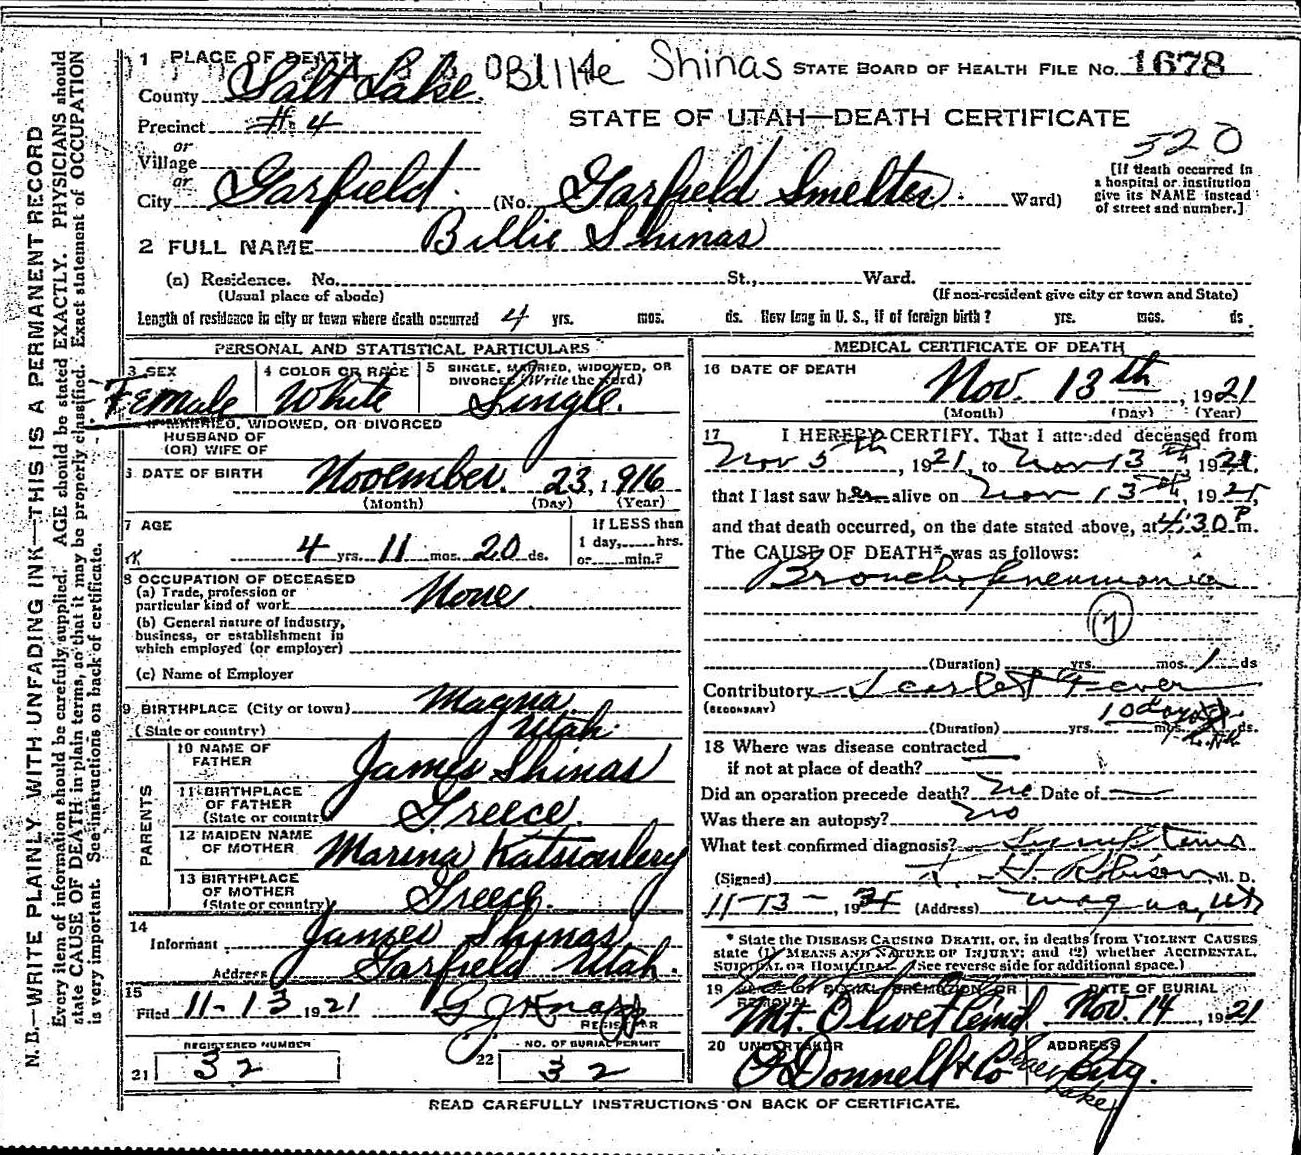 1 PLACE OF DEATH
Billie Shinas STATE BOARD OF HEALTH FILE No. 1678
County Salt Lake
STATE OF UTAH—DEATH CERTIFICATE
Precinct #4
520
or
Village
or
City Garfield (No. Garfield Smelter Ward)
[If death occurred in
a hospital or institution
give its NAME instead
of street and number.]
2 FULL NAME Billie Shinas
(a) Residence. No. St., Ward.
(Usual place of abode) (If non-resident give city or town and State)
Length of residence in city or town where death occurred 4 yrs. mos. ds. How long in U. S., if of foreign birth? yrs. mos. ds.
PERSONAL AND STATISTICAL PARTICULARS
3 SEX 4 COLOR OR RACE 5 SINGLE, MARRIED, WIDOWED, OR
DIVORCED (Write the word)
Female White Single.
IF MARRIED, WIDOWED, OR DIVORCED
HUSBAND OF
(OR) WIFE OF
6 DATE OF BIRTH November 23, 1916
(Month) (Day) (Year)
7 AGE If LESS than
4 yrs. 11 mos. 20 ds. 1 day, hrs.
or min.?
8 OCCUPATION OF DECEASED
(a) Trade, profession or
particular kind of work None.
(b) General nature of industry,
business, or establishment in
which employed (or employer)
(c) Name of Employer
9 BIRTHPLACE (City or town) Magna
(State or country) Utah.
PARENTS
10 NAME OF
FATHER James Shinas
11 BIRTHPLACE
OF FATHER
(State or country) Greece.
12 MAIDEN NAME
OF MOTHER Marina
13 BIRTHPLACE
OF MOTHER
(State or country) Greece.
14
Informant James Shinas
Address Garfield Utah.
15
Filed 11-13 1921 G J Knapp
REGISTRAR
REGISTERED NUMBER NO. OF BURIAL PERMIT
21 32 22 32
MEDICAL CERTIFICATE OF DEATH
16 DATE OF DEATH
Nov. 13th, 1921
(Month) (Day) (Year)
17 I HEREBY CERTIFY, That I attended deceased from
Nov 5th, 1921, to Nov 13th, 1921,
that I last saw her alive on Nov 13th, 1921,
and that death occurred, on the date stated above, at 4:30 P m.
The CAUSE OF DEATH* was as follows:
Broncho pneumonia
(Duration) yrs. mos. 1 ds
Contributory Scarlet Fever
(SECONDARY)
10 days
(Duration) yrs. mos. ds.
18 Where was disease contracted
if not at place of death?
Did an operation precede death? no Date of
Was there an autopsy? no
What test confirmed diagnosis? Symptoms
(Signed) T. H. Robison, M. D.
11-13-, 19 (Address) Magna, Ut
* State the DISEASE CAUSING DEATH, or, in deaths from VIOLENT CAUSES
state (1) MEANS AND NATURE OF INJURY; and (2) whether ACCIDENTAL,
SUICIDAL OR HOMICIDAL. (See reverse side for additional space.)
19 PLACE OF BURIAL, CREMATION, OR
REMOVAL DATE OF BURIAL
Mt. Olivet Nov. 14, 1921
20 UNDERTAKER ADDRESS
O'Donnell & Co Salt Lake City.
READ CAREFULLY INSTRUCTIONS ON BACK OF CERTIFICATE.
N. B.—WRITE PLAINLY WITH UNFADING INK—THIS IS A PERMANENT RECORD
Every item of information should be carefully supplied. AGE should be stated EXACTLY. PHYSICIANS should
state CAUSE OF DEATH in plain terms, so that it may be properly classified. Exact statement of OCCUPATION
is very important. See instructions on back of certificate.